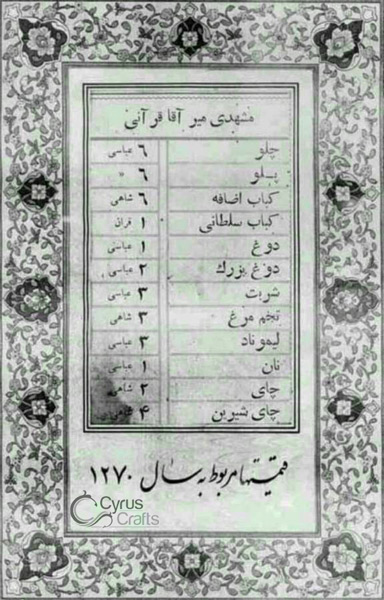 مشهدی میر آقا قرآنی
چلو ۶ عباسی
پلو ۶ »
کباب اضافه ۶ شاهی
کباب سلطانی ۱ قران
دوغ ۱ عباسی
دوغ بزرگ ۲ عباسی
شربت ۳ عباسی
تخم مرغ ۳ شاهی
لیموناد ۳ عباسی
نان ۱ عباسی
چای ۲ شاهی
چای شیرین ۴ شاهی
قیمتها مربوط به سال ۱۲۷۰
Cyrus
Crafts